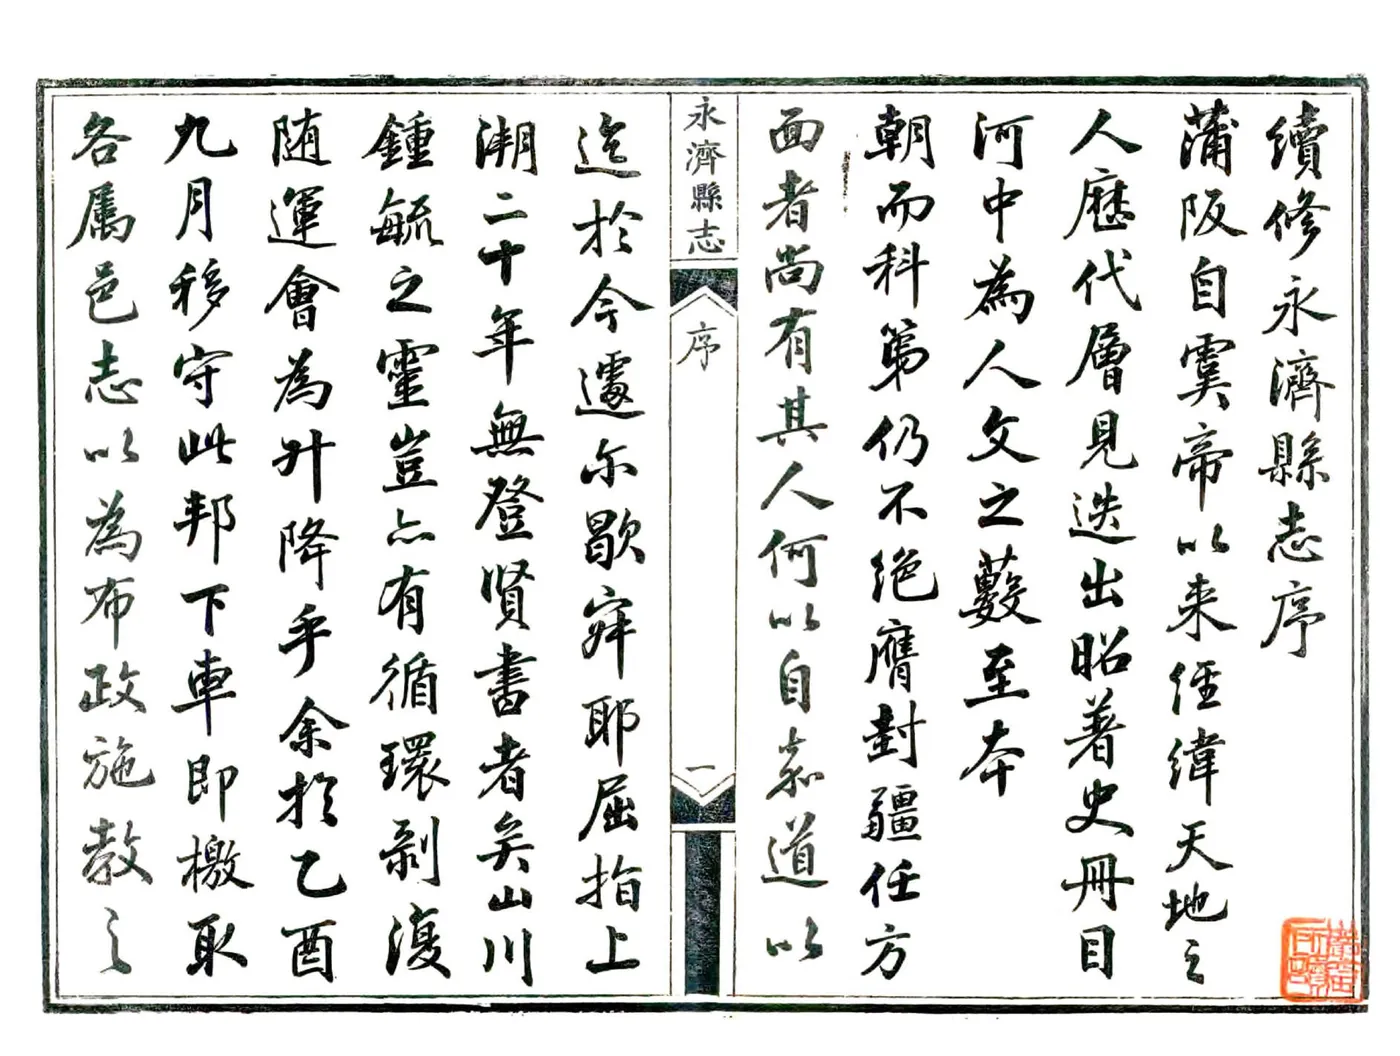 續修永濟縣志序
蒲阪自虞帝以来經緯天地之
人歷代層見迭出昭著史冊目
河中為人文之藪至本
朝而科第仍不絕膺封疆任方
面者尚有其人何以自嘉道以
永濟縣志
序
一
迄於今遽尔歇寂耶屈指上
溯二十年無登賢書者矣山川
鍾毓之靈豈亦有循環剝復
随運會為升降乎余於乙酉
九月移守此邦下車即檄取
各属邑志以為布政施教之